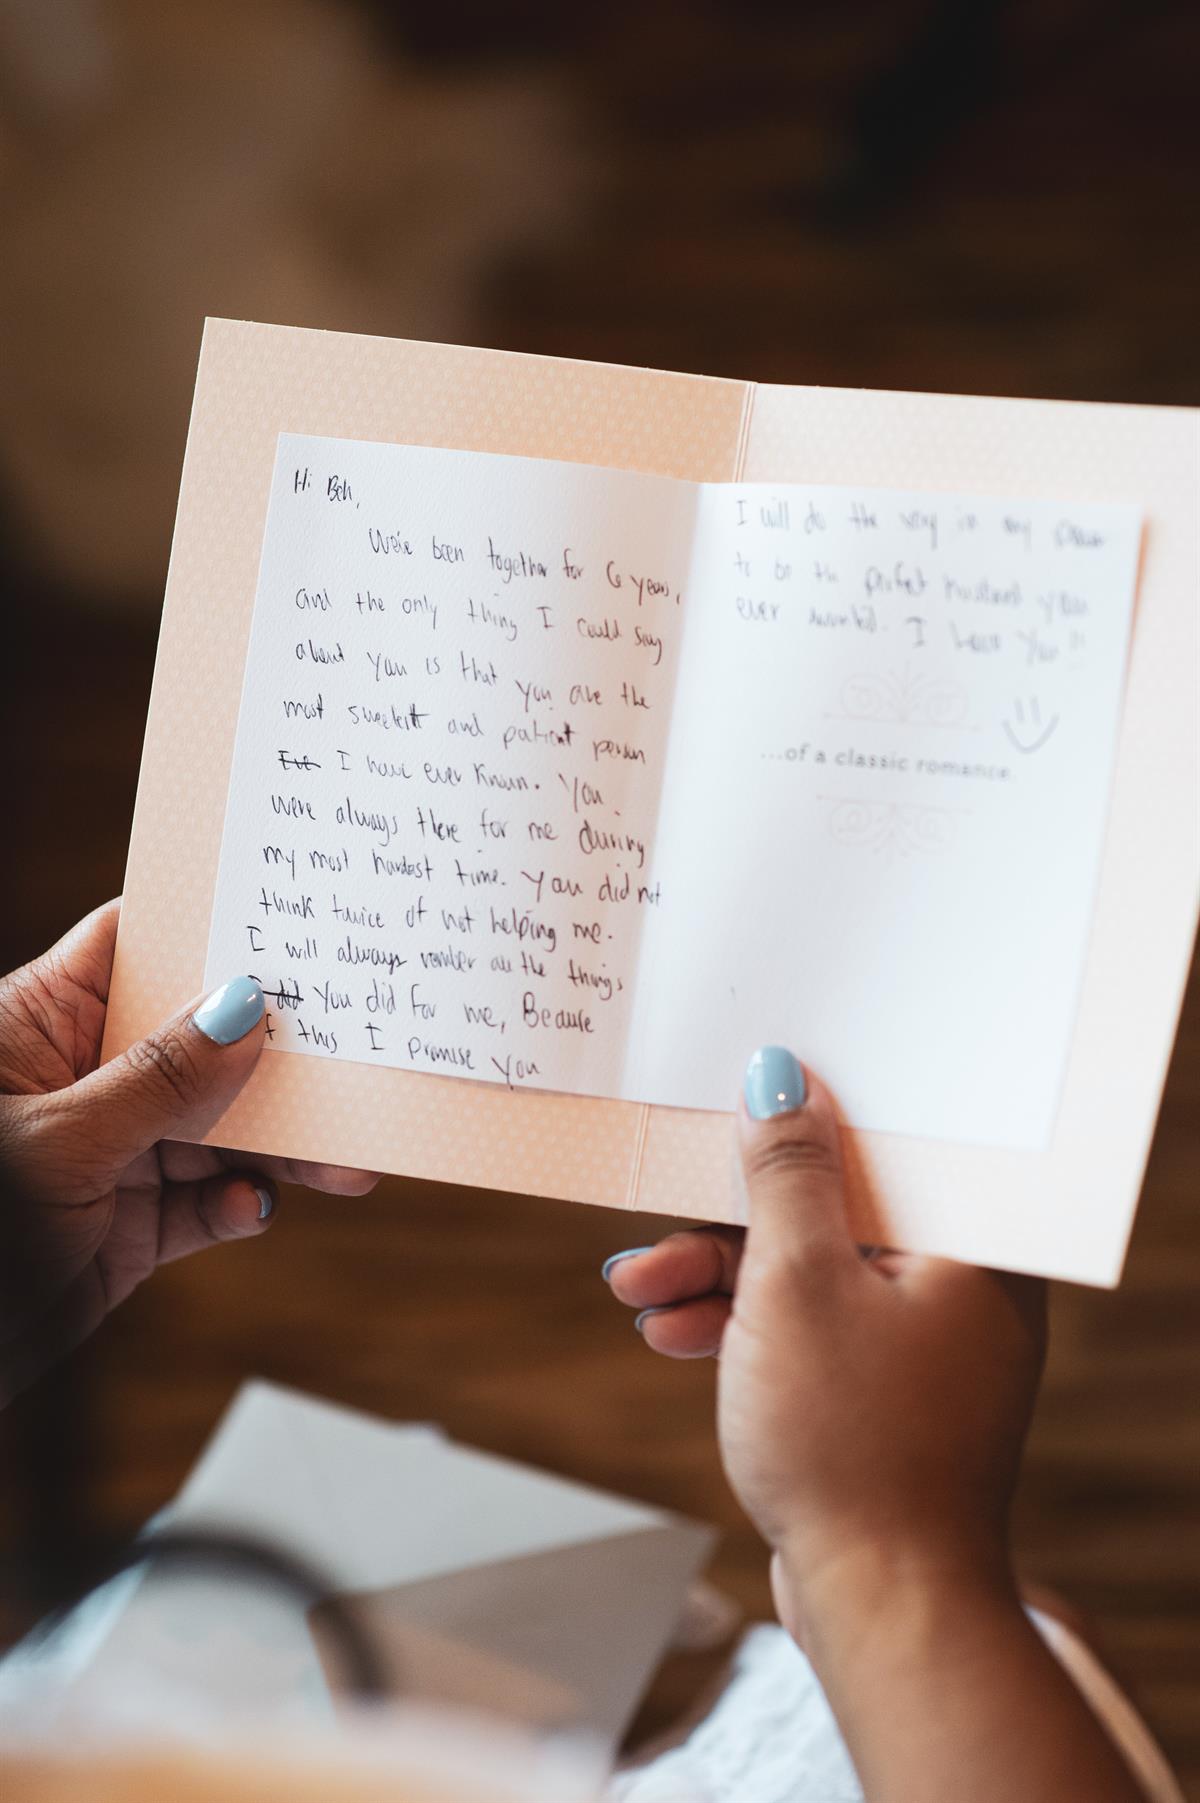 Hi Beh,
We've been together for 6 years,
and the only thing I could say
about you is that you are the
most sweetest and patient person
I've I have ever known. You
were always there for me during
my most hardest time. You did not
think twice of not helping me.
I will always rember all the things
I did You did for me, Because
f this I promise you
I will do the very in my
to be the perfect husband you
ever wanted. I You!!
...of a classic romance.